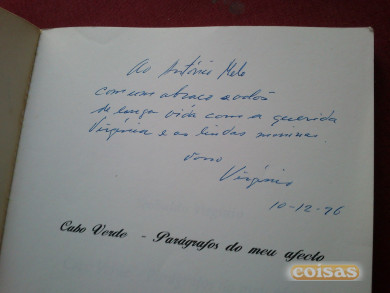 Ao António Melo
com um abraço e votos
de longa vida com a querida
Virgínia e as lindas meninas.
Virgínio
10-12-76
Cabo Verde - Parágrafos do meu afecto
coisas